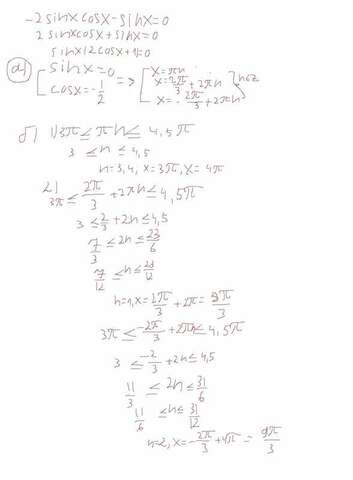 -2sinxcosx-sinx=0
2sinxcosx+sinx=0
sinx(2cosx+1)=0
а) [sinx=0 [cosx=-1/2 => [x=πn [x=2π/3+2πn [x=-2π/3+2πn } n∈z
б) 1) 3π ≤ πn ≤ 4,5π
3 ≤ n ≤ 4,5
n=3,4, x=3π, x=4π
2) 3π ≤ 2π/3 + 2πn ≤ 4,5π
3 ≤ 2/3 + 2n ≤ 4,5
7/3 ≤ 2n ≤ 23/6
7/12 ≤ n ≤ 23/12
n=1, x=2π/3 + 2π = 8π/3
3π ≤ -2π/3 + 2πn ≤ 4,5π
3 ≤ -2/3 + 2n ≤ 4,5
11/3 ≤ 2n ≤ 31/6
11/6 ≤ n ≤ 31/12
n=2, x=-2π/3 + 4π =